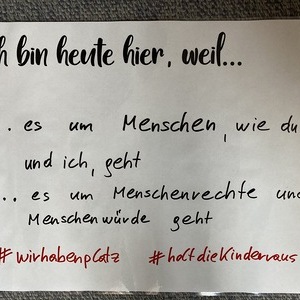 h bin heute hier, weil...
.. es um Menschen, wie du
und ich, geht
... es um Menschenrechte und
Menschenwürde geht
#wirhabenplatz #holtdieKinderraus